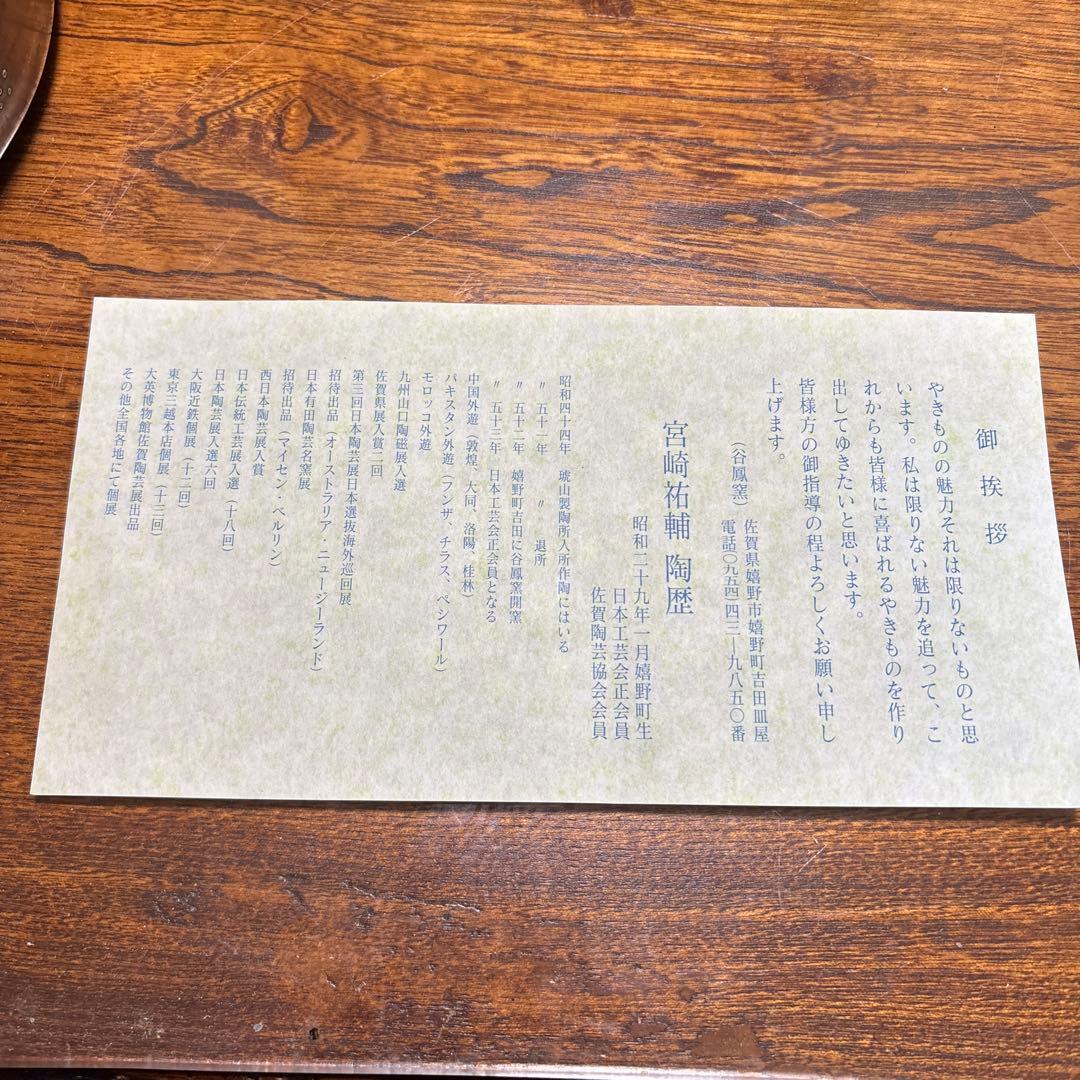 御挨拶
やきものの魅力それは限りないものと思
います。私は限りない魅力を追って、こ
れからも皆様に喜ばれるやきものを作り
出してゆきたいと思います。
皆様方の御指導の程よろしくお願い申し
上げます。
(谷鳳窯) 佐賀県嬉野市嬉野町吉田皿屋
電話〇九五四―四三―九八五〇番
宮崎祐輔 陶歴
昭和二十九年一月嬉野町生
日本工芸会正会員
佐賀陶芸協会会員
昭和四十四年 琥山製陶所入所作陶にはいる
〃 五十一年 〃 退所
〃 五十二年 嬉野町吉田に谷鳳窯開窯
〃 五十三年 日本工芸会正会員となる
中国外遊(敦煌、大同、洛陽、桂林)
パキスタン外遊(フンザ、チラス、ペシワール)
モロッコ外遊
九州山口陶磁展入選
佐賀県展入賞二回
第三回日本陶芸展日本選抜海外巡回展
招待出品(オーストラリア・ニュージーランド)
日本有田陶芸名窯展
招待出品(マイセン・ベルリン)
西日本陶芸展入賞
日本伝統工芸展入選(十八回)
日本陶芸展入選六回
大阪近鉄個展(十二回)
東京三越本店個展(十三回)
大英博物館佐賀陶芸展出品
その他全国各地にて個展